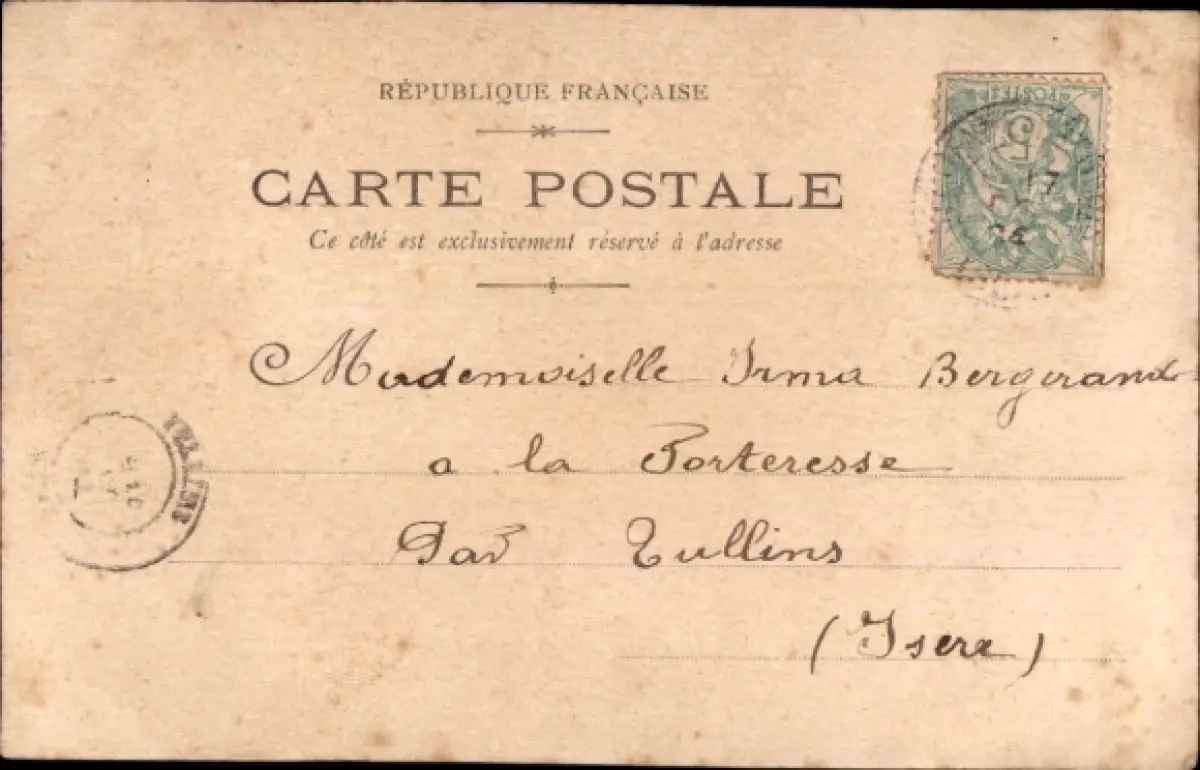 RÉPUBLIQUE FRANÇAISE
CARTE POSTALE
Ce côté est exclusivement réservé à l'adresse
POSTES
5
17
04
Mademoiselle Irma Bergerand
a la Forteresse
Par Tullins
(Isere)